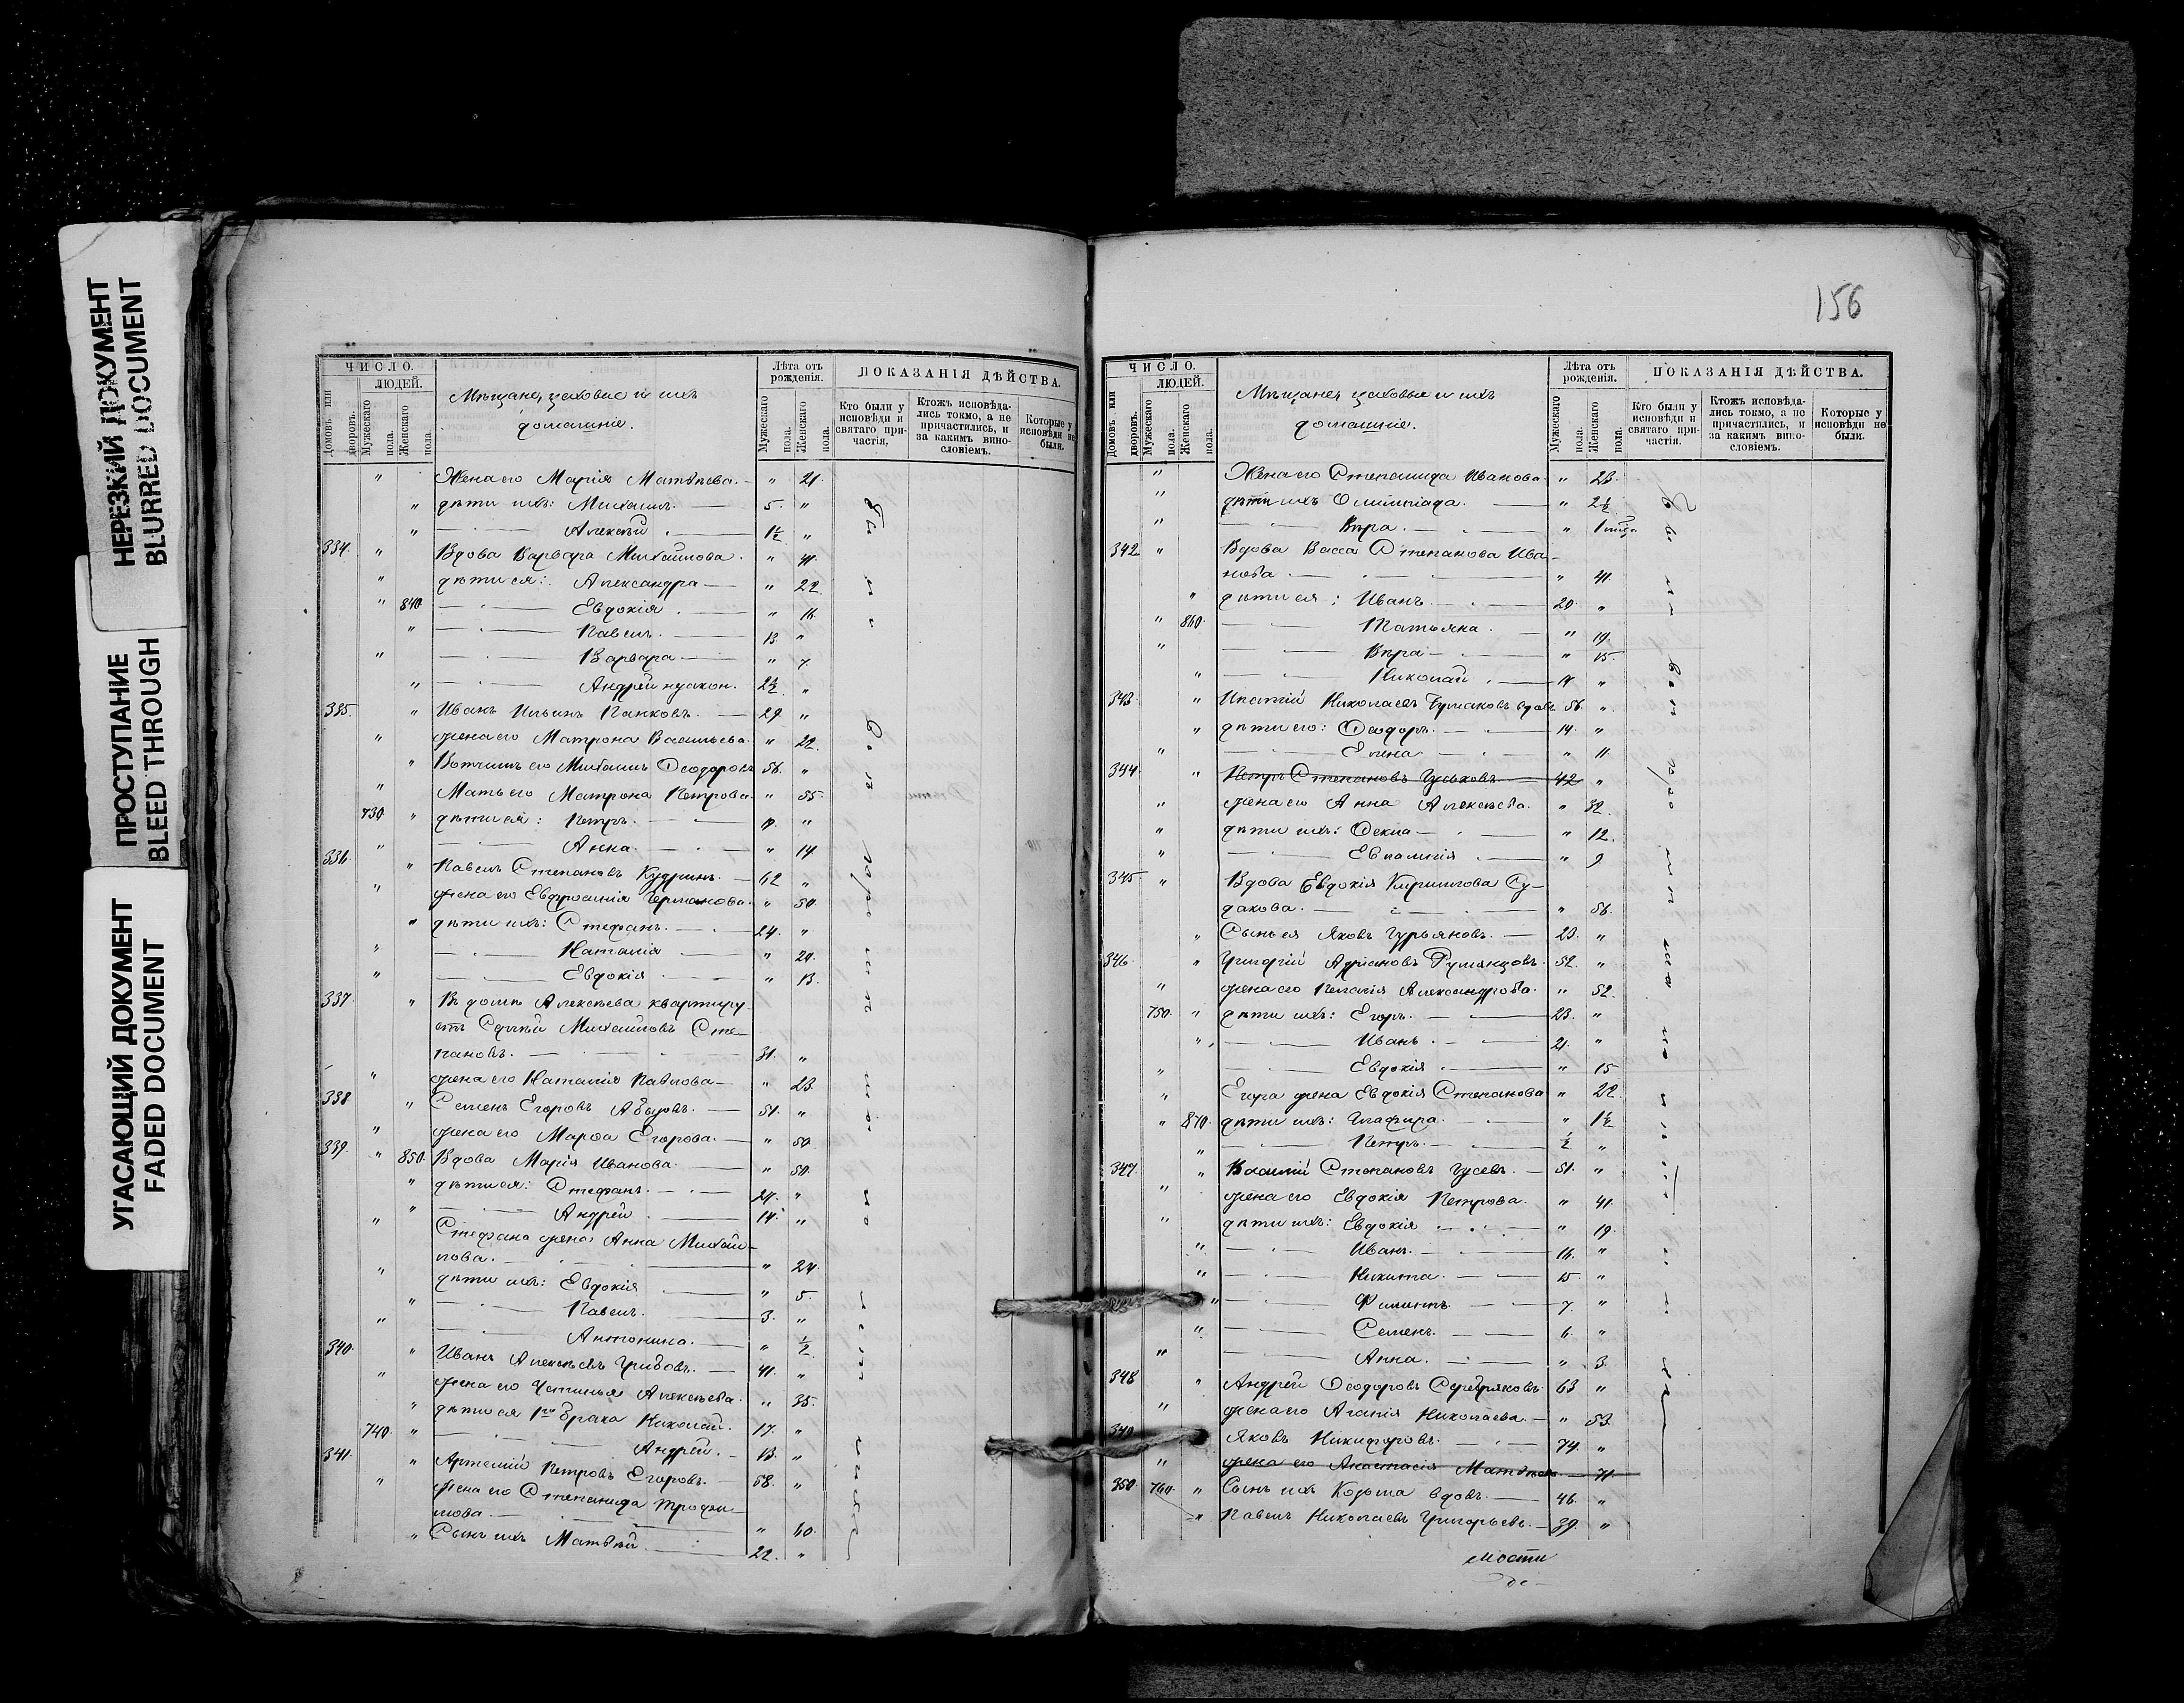 НЕРЕЗКИЙ ДОКУМЕНТ
BLURRED DOCUMENT
ПРОСТУПАНИЕ
BLEED THROUGH
УГАСАЮЩИЙ ДОКУМЕНТ
FADED DOCUMENT
ЧИСЛО.
ЛЮДЕЙ.
Домовъ или дворовъ.
Мужескаго пола.
Женскаго пола
Мѣщане, цеховые и ихъ
домашніе.
Лѣта отъ рожденія.
Мужескаго пола.
Женскаго пола.
ПОКАЗАНІЯ ДѢЙСТВА.
Кто были у исповѣди и святаго причастія.
Ктожъ исповѣдались токмо, а не причастились, и за какимъ винословіемъ.
Которые у исповѣди не были.
" Жена его Марія Матвѣева. — " 21.
" дѣти ихъ: Михаилъ. — 5. "
" — Алексѣй — 1½ "
334. " Вдова Варвара Михайлова. " 41.
" дѣти ея: Александра — " 22.
" 840 — Евдокія — " 16.
" — Павелъ. — 13. "
" — Варвара — " 7.
" — Андрей 2½ "
335. " Иванъ Ильинъ Панковъ. — 29. "
" жена его Матрона Васильева. " 22.
" Вотчимъ его Михаилъ Ѳеодоровъ 56. "
" Мать его Матрона Петрова. " 55.
730 " дѣти ея: Петръ. — "
" — Анна. — " 14.
336. " Павелъ Степановъ Кудринъ. — 62 "
" жена его Евфросинія Германова. " 50.
" дѣти ихъ: Стефанъ. — 24. "
" — Наталія — " 20.
" — Евдокія — " 13.
337. " Въ домѣ Алексѣева квартиру-
етъ Михайловъ Сте-
пановъ. — 31. "
" жена его Наталія Павлова — " 23.
338 " Семенъ Егоровъ — 51. "
" жена его Марѳа Егорова. — " 50.
339. " 850. Вдова Марія Иванова. — " 50.
" дѣти ея: Стефанъ. — 24. "
" — Андрей — 14. "
" Стефана жена Анна Михай-
лова. — " 24.
" дѣти ихъ: Евдокія — " 5.
" — Павелъ. — 3. "
" — Антонина. — " ½
340. " Иванъ Алексѣевъ Грибовъ. — 41. "
" жена его Устинья Алексѣева. " 35.
" дѣти ея 1го брака Николай. 17. "
740. " — Андрей. — 13. "
341. " Артемій Петровъ Егоровъ. — 58. "
" жена его Степанида Трофи-
мова. — " 60.
" Сынъ ихъ Матвѣй. — 22. "
156
ЧИСЛО.
ЛЮДЕЙ.
Домовъ или дворовъ.
Мужескаго пола.
Женскаго пола.
Мѣщане, цеховые и ихъ
домашніе.
Лѣта отъ рожденія.
Мужескаго пола.
Женскаго пола.
ПОКАЗАНІЯ ДѢЙСТВА.
Кто были у исповѣди и святаго причастія.
Ктожъ исповѣдались токмо, а не причастились, и за какимъ винословіемъ.
Которые у исповѣди не были.
" Жена его Степанида Иванова. " 23.
" дѣти ихъ Олимпіада. — " 2½
" — Вѣра. — " 1 мѣс.
342 " Вдова Васса Степанова Ива-
нова. — " 41.
" дѣти ея: Иванъ. — 20. "
" 860. — Татьяна. — " 19.
" — Вѣра — " 15.
" — Николай — 14 "
343. " Ипатій Николаевъ вдовъ 56. "
" дѣти его: Ѳеодоръ. — 14. "
" — Елена — " 11
344. " Петръ Степановъ Гуськовъ — 42 "
" жена его Анна Алексѣева. " 32.
" дѣти ихъ: Ѳекла — " 12.
" — Евлампія — " 9
345 " Вдова Евдокія Кириллова Су-
дакова. — " 56.
" Сынъ ея Яковъ Гурьяновъ. — 23. "
346. " Григорій Адріановъ Румянцовъ. 52. "
" жена его Пелагія Александрова. " 52.
750. " дѣти ихъ: Егоръ. — 23. "
" — Иванъ. — 21. "
" — Евдокія — " 15
" Егора жена Евдокія Степанова " 22.
" 870. дѣти ихъ: Глафира. — " 1½
" — Петръ. — ½ "
347. " Василій Степановъ Гусевъ. — 51. "
" жена его Евдокія Петрова. " 41.
" дѣти ихъ: Евдокія — " 19.
" — Иванъ. — 16. "
" — Никита. — 15. "
" — Филиппъ. — 7. "
" — Семенъ. — 6. "
" — Анна. — " 3.
348 " Андрей Ѳеодоровъ Серебряковъ. 63 "
" жена его Агапія Николаева. — " 53.
349. Яковъ Никифоровъ. — 74. "
" жена его Анастасія Матвѣева. — 71.
350. 760. " Сынъ ихъ Козьма вдовъ. — 46. "
" Павелъ Николаевъ Григорьевъ. — 39. "